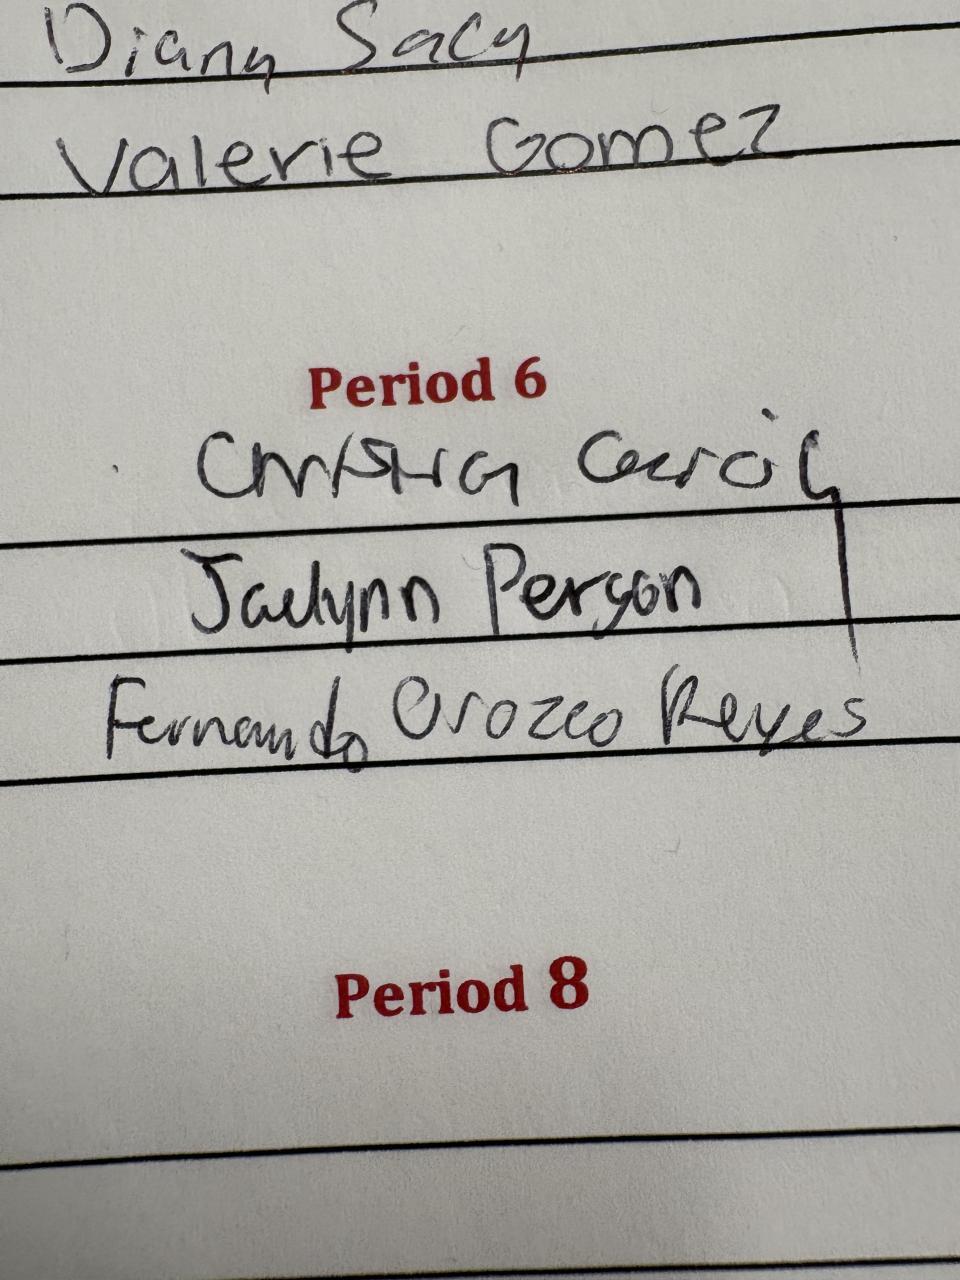 Diana Saca
Valerie Gomez
Period 6
Christina Garcia
Jaelynn Person
Fernando Orozco Reyes
Period 8